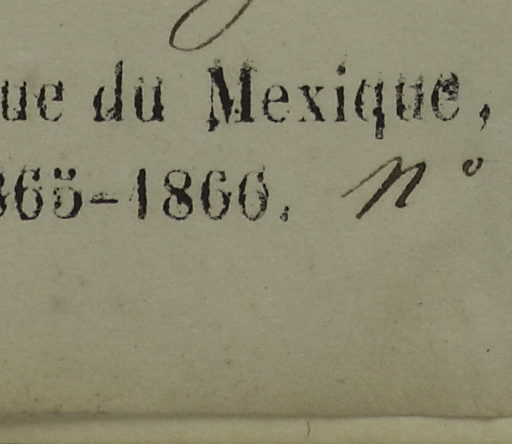 ue du Mexique,
865-1866. n°